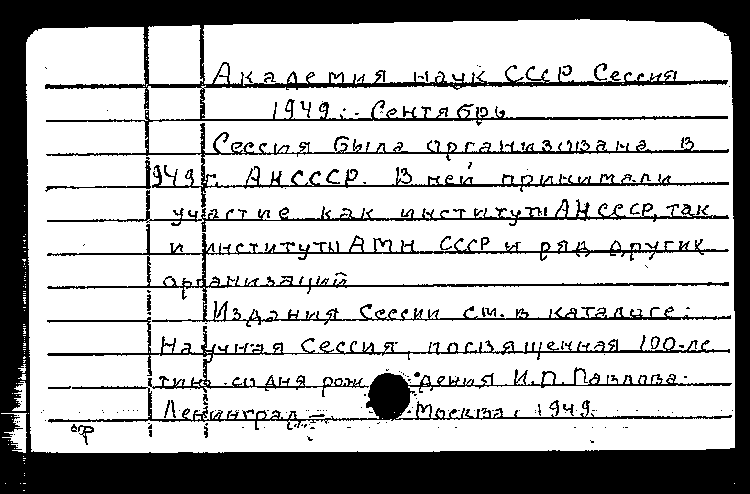 Академия наук СССР Сессия
1949:. Сентябрь
Сессия была организована в
1949г. АНСССР. В ней принимали
участие как институты АН СССР, так
и институты АМН СССР и ряд других
организаций
Издания Сессии см. в каталоге:
Научная Сессия, посвященная 100-ле
тию со дня рождения И.П. Павлова.
Ленинград – Москва. 1949.